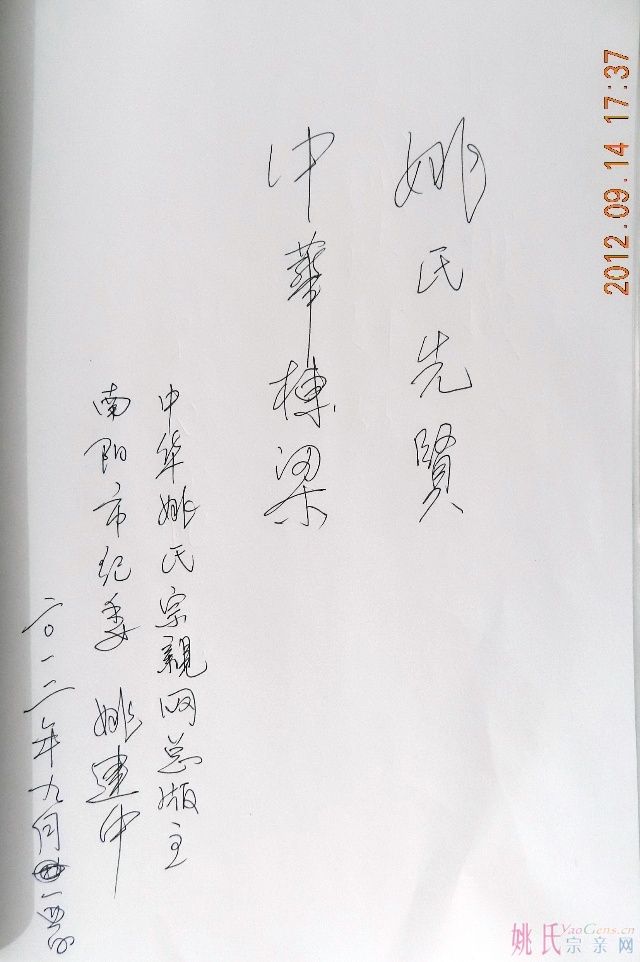 姚氏先賢
中華棟梁
中华姚氏宗親网总版主
南阳市纪委 姚建中
二〇一二年九月十四日
2012.09.14 17:37
姚氏宗亲网
YaoGens.cn